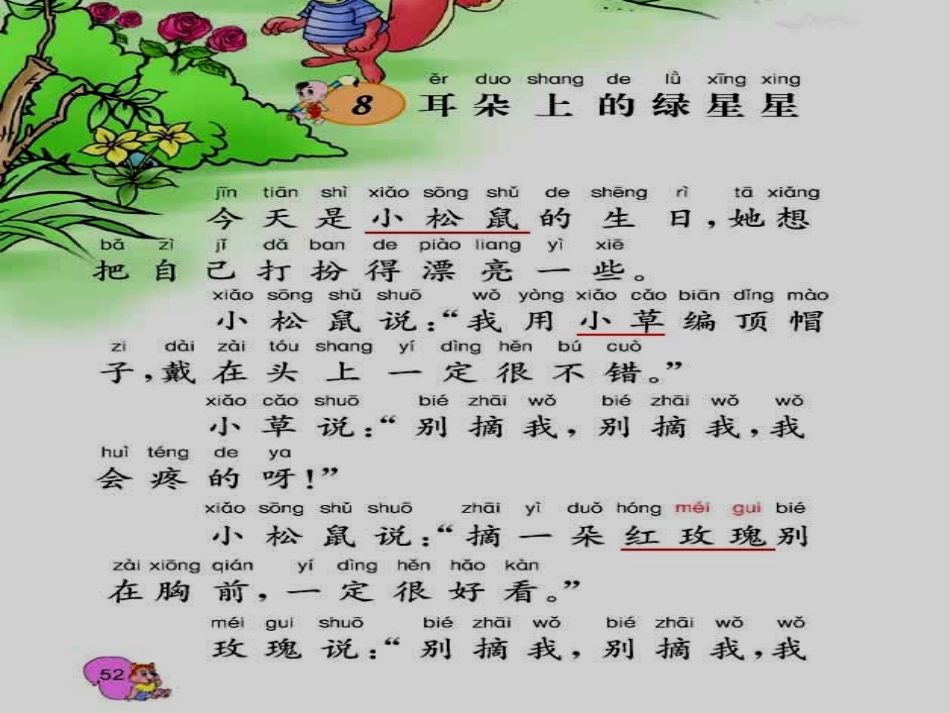 ěr duo shang de lǜ xīng xing
8 耳朵上的绿星星
jīn tiān shì xiǎo sōng shǔ de shēng rì tā xiǎng
今天是小松鼠的生日，她想
bǎ zì jǐ dǎ ban de piào liang yì xiē
把自己打扮得漂亮一些。
xiǎo sōng shǔ shuō wǒ yòng xiǎo cǎo biān dǐng mào
小松鼠说：“我用小草编顶帽
zi dài zài tóu shang yí dìng hěn bú cuò
子，戴在头上一定很不错。”
xiǎo cǎo shuō bié zhāi wǒ bié zhāi wǒ wǒ
小草说：“别摘我，别摘我，我
huì téng de ya
会疼的呀！”
xiǎo sōng shǔ shuō zhāi yì duǒ hóng méi gui bié
小松鼠说：“摘一朵红玫瑰别
zài xiōng qián yí dìng hěn hǎo kàn
在胸前，一定很好看。”
méi gui shuō bié zhāi wǒ bié zhāi wǒ wǒ
玫瑰说：“别摘我，别摘我，我
52